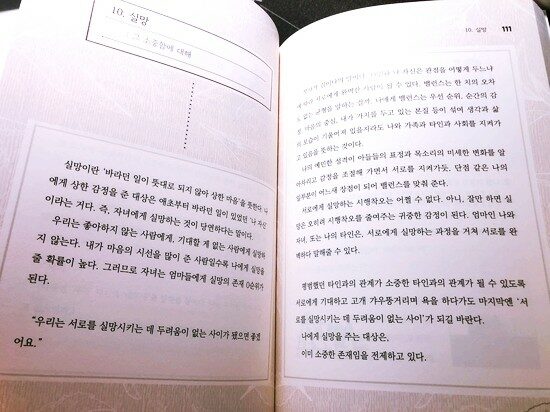 10. 실망
그 소중함에 대해
실망이란 '바라던 일이 뜻대로 되지 않아 상한 마음'을 뜻한다. 나
에게 상한 감정을 준 대상은 애초부터 바라던 일이 있었던 '나 자신'
이라는 거다. 즉, 자녀에게 실망하는 것이 당연하다는 말이다.
우리는 좋아하지 않는 사람에게, 기대할 게 없는 사람에게 실망하
지 않는다. 내가 마음의 시선을 많이 준 사람일수록 나에게 실망을
줄 확률이 높다. 그러므로 자녀는 엄마들에게 실망의 존재 0순위가
된다.
"우리는 서로를 실망시키는 데 두려움이 없는 사이가 됐으면 좋겠
어요."
10. 실망 111
자신은 관점을 어떻게 두느냐
서로에게 완벽한 사람이 될 수 있다. 밸런스는 한 치의 오차
없는 균형을 말하는 걸까. 나에게 밸런스는 우선 순위, 순간의 감
정, 마음의 중심, 내가 가치를 두고 있는 본질 등이 섞여 생각과 삶
의 모습이 기울어져 있을지라도 나와 가족과 타인과 사회를 지켜가
고 있음을 뜻하는 것이다.
나의 예민한 성격이 아들들의 표정과 목소리의 미세한 변화를 알
아차리고 감정을 조절해 가면서 서로를 지켜가듯, 단점 같은 나의
일부분이 어느새 장점이 되어 밸런스를 맞춰 준다.
서로에게 실망하는 시행착오는 어쩔 수 없다. 아니, 잘만 하면 실
망은 오히려 시행착오를 줄여주는 귀중한 감정이 된다. 엄마인 나와
자녀, 또는 나의 타인은, 서로에게 실망하는 과정을 거쳐 서로를 완
벽하다 말해줄 수 있다.
평범했던 타인과의 관계가 소중한 타인과의 관계가 될 수 있도록
서로에게 기대하고 고개 갸우뚱거리며 욕을 하다가도 마지막엔 '서
로를 실망시키는 데 두려움이 없는 사이'가 되길 바란다.
나에게 실망을 주는 대상은,
이미 소중한 존재임을 전제하고 있다.